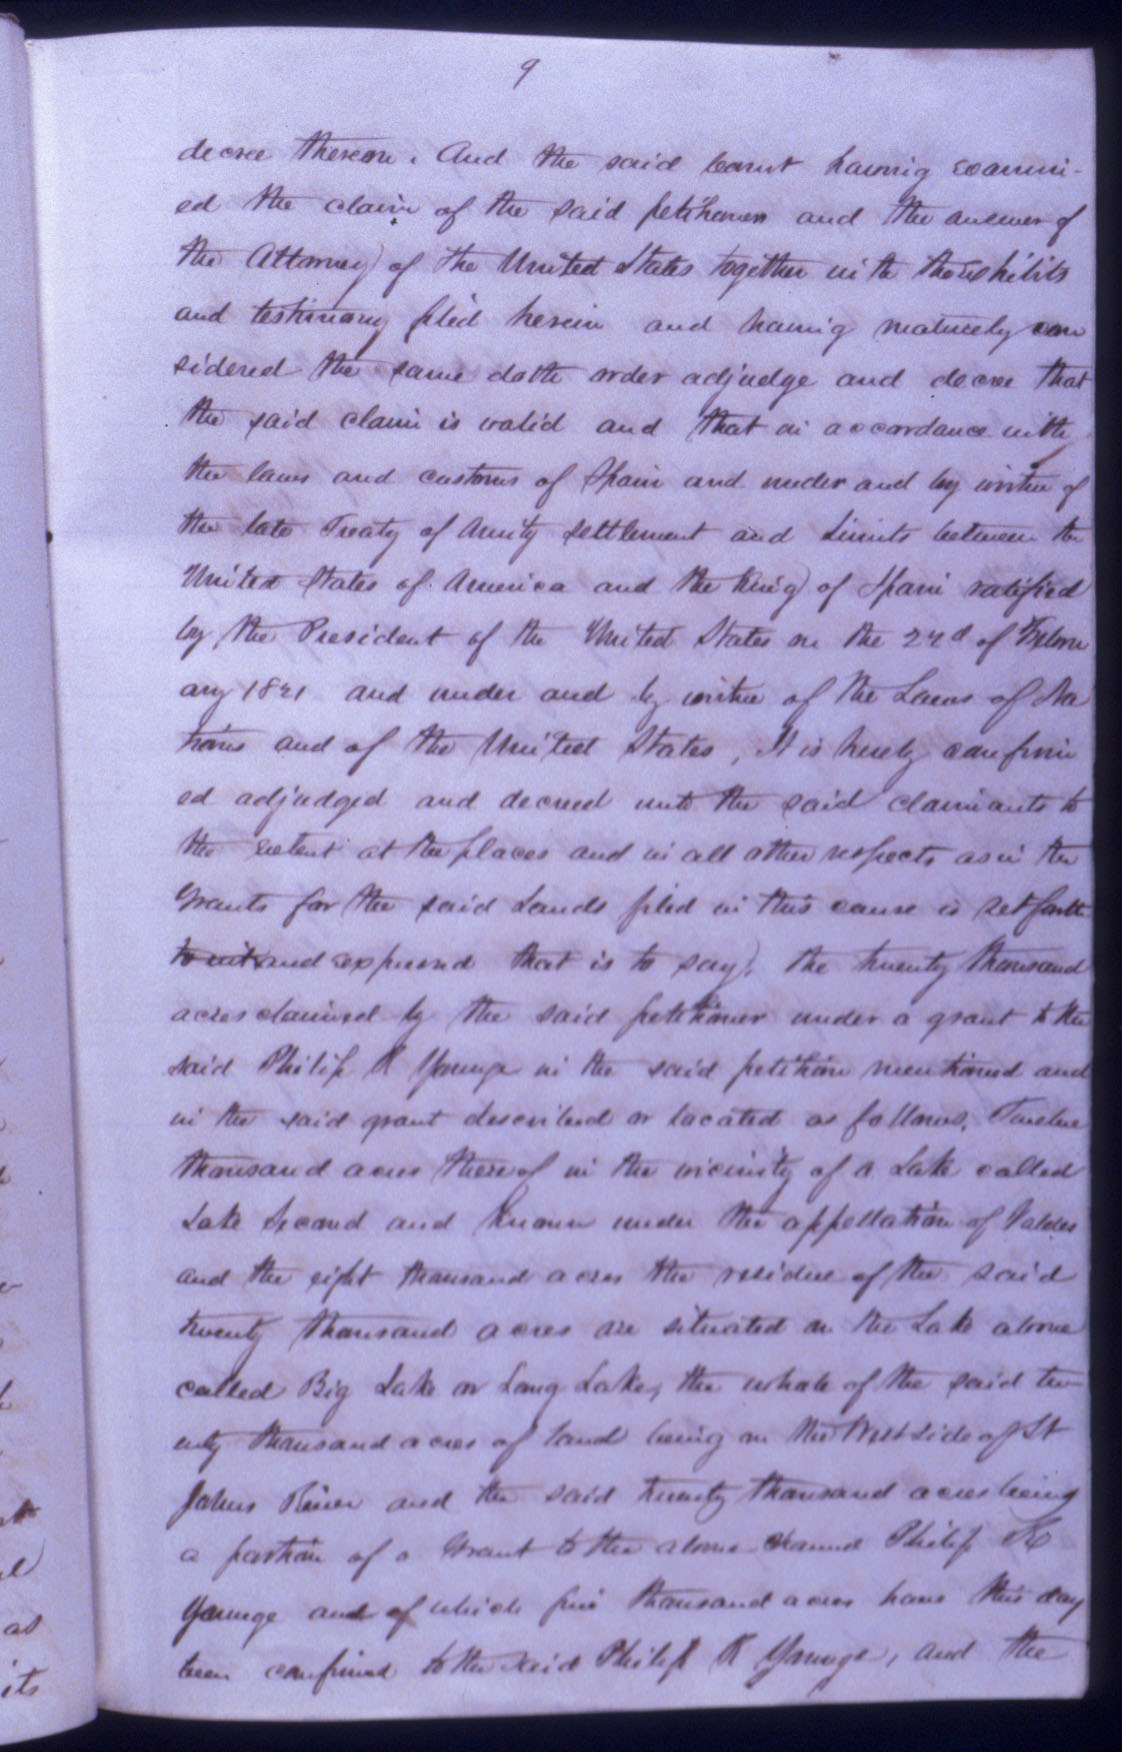 9
decree thereon. And the said Court having examin-
ed the claim of the said petitioners and the answer of
the Attorney of the United States together with the Exhibits
and testimony filed herein and having maturely con
sidered the same doth order adjudge and decree that
the said claim is valid and that in accordance with
the laws and customs of Spain and under and by virtue of
the late Treaty of Amity settlement and Limits between the
United States of America and the King of Spain ratified
by the President of the United States on the 22d of Febru
ary 1821 and under and by virtue of the Laws of Na
tions and of the United States, It is hereby confirm
ed adjudged and decreed unto the said claimants to
the extent at the places and in all other respects as in the
Grants for the said Lands filed in this cause is set forth
to wit and expressed that is to say, the twenty thousand
acres claimed by the said petitioner under a grant to the
said Philip R Younge in the said petition mentioned and
in the said grant described or located as follows, Twelve
thousand acres thereof in the vicinity of a Lake called
Lake Second and known under the appellation of Valdes
and the eight thousand acres the residue of the said
twenty thousand acres are situated on the Lake above
called Big Lake or Long Lake, the whole of the said tw
enty thousand acres of land being on the West side of St
Johns River and the said twenty thousand acres being
a portion of a Grant to the above named Philip R
Younge and of which five thousand acres have this day
been confirmed to the said Philip R Younge, and the
as
its